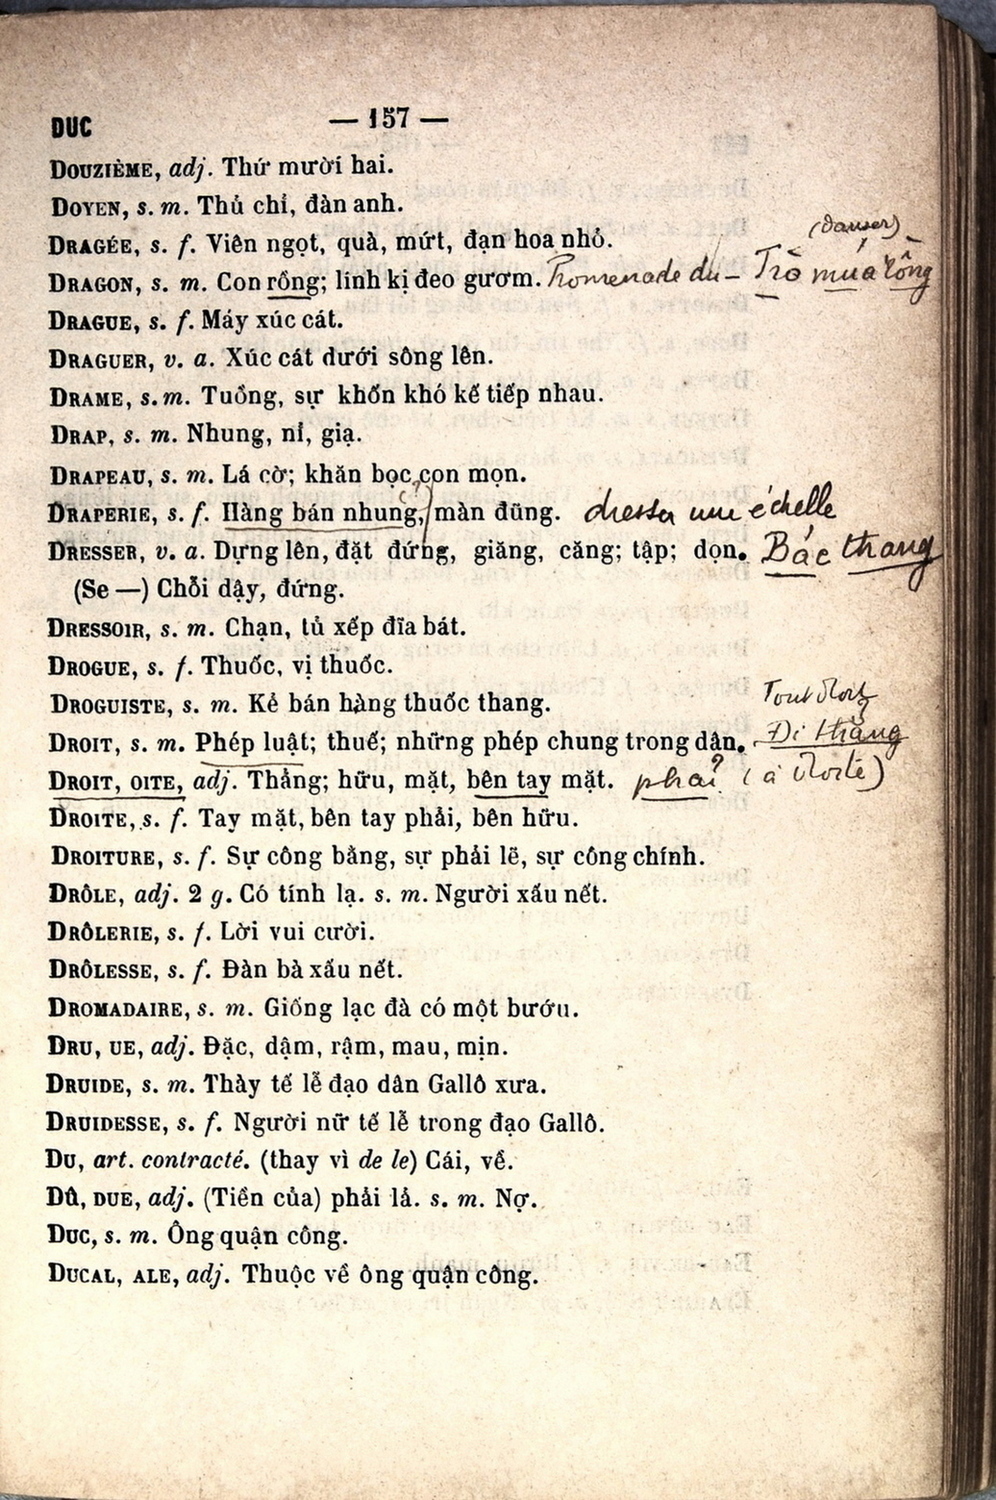 DUC — 157 —
DOUZIÈME, adj. Thứ mười hai.
DOYEN, s. m. Thủ chỉ, đàn anh.
DRAGÉE, s. f. Viên ngọt, quà, mứt, đạn hoa nhỏ.
(danser)
DRAGON, s. m. Con rồng; lính kị đeo gươm. Promenade du — Trò múa rồng
DRAGUE, s. f. Máy xúc cát.
DRAGUER, v. a. Xúc cát dưới sông lên.
DRAME, s. m. Tuồng, sự khốn khó kế tiếp nhau.
DRAP, s. m. Nhung, nỉ, giạ.
DRAPEAU, s. m. Lá cờ; khăn bọc con mọn.
DRAPERIE, s. f. Hàng bán nhung, màn đũng. dresser une échelle
DRESSER, v. a. Dựng lên, đặt đứng, giăng, căng; tập; dọn. Bác thang
(Se —) Chỗi dậy, đứng.
DRESSOIR, s. m. Chạn, tủ xếp đĩa bát.
DROGUE, s. f. Thuốc, vị thuốc.
DROGUISTE, s. m. Kẻ bán hàng thuốc thang.
Tout droit
DROIT, s. m. Phép luật; thuế; những phép chung trong dân. Đi thẳng
DROIT, OITE, adj. Thẳng; hữu, mặt, bên tay mặt. phải (à droite)
DROITE, s. f. Tay mặt, bên tay phải, bên hữu.
DROITURE, s. f. Sự công bằng, sự phải lẽ, sự công chính.
DRÔLE, adj. 2 g. Có tính lạ. s. m. Người xấu nết.
DRÔLERIE, s. f. Lời vui cười.
DRÔLESSE, s. f. Đàn bà xấu nết.
DROMADAIRE, s. m. Giống lạc đà có một bướu.
DRU, UE, adj. Đặc, dậm, rậm, mau, mịn.
DRUIDE, s. m. Thày tế lễ đạo dân Gallô xưa.
DRUIDESSE, s. f. Người nữ tế lễ trong đạo Gallô.
DU, art. contracté. (thay vì de le) Cái, về.
DÛ, DUE, adj. (Tiền của) phải lả. s. m. Nợ.
DUC, s. m. Ông quận công.
DUCAL, ALE, adj. Thuộc về ông quận công.